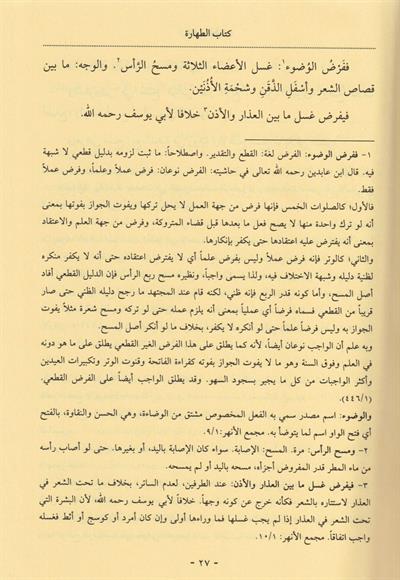 كتاب الطهارة
ففَرْضُ الوُضوء١: غسل الأعضاء الثلاثة ومسحُ الرَّأس٢. والوجه: ما بين
قصاص الشعر وأسْفَلِ الذَّقَنِ وشَحْمَةِ الأُذُنَين.
فيفرض غسل ما بين العذار والأذن٣ خلافا لأبي يوسف رحمه الله.
١- ففرض الوضوء: الفرض لغة: القطع والتقدير. واصطلاحاً: ما ثبت لزومه بدليل قطعي لا شبهة
فيه. قال ابن عابدين رحمه الله تعالى في حاشيته: الفرض نوعان: فرض عملاً وعلماً، وفرض عملاً
فقط.
فالأول؛ كالصلوات الخمس فإنها فرض من جهة العمل لا يحل تركها ويفوت الجواز بفوتها بمعنى
أنه لو ترك واحدة منها لا يصح فعل ما بعدها قبل قضاء المتروكة، وفرض من جهة العلم والاعتقاد
بمعنى أنه يفترض عليه اعتقادها حتى يكفر بإنكارها.
والثاني؛ كالوتر فإنه فرض عملاً وليس بفرض علماً أي لا يفترض اعتقاده حتى أنه لا يكفر منكره
لظنية دليله وشبهة الاختلاف فيه، ولذا يسمى واجباً، ونظيره مسح ربع الرأس فإن الدليل القطعي أفاد
أصل المسح، وأما كونه قدر الربع فإنه ظني، لكنه قام عند المجتهد ما رجح دليله الظني حتى صار
قريباً من القطعي فسماه فرضاً أي عملياً بمعنى أنه يلزم عمله حتى لو تركه ومسح شعرة مثلاً يفوت
الجواز به وليس فرضاً علماً حتى لو أنكره لا يكفر، بخلاف ما لو أنكر أصل المسح.
وبه علم أن الواجب نوعان أيضاً، لأنه كما يطلق على هذا الفرض الغير القطعي يطلق على ما هو دونه
في العمل وفوق السنة وهو ما لا يفوت الجواز بفوته كقراءة الفاتحة وقنوت الوتر وتكبيرات العيدين
وأكثر الواجبات من كل ما يجبر بسجود السهو. وقد يطلق الواجب أيضاً على الفرض القطعي.
(٤٤٦/١)
والوضوء: اسم مصدر سمي به الفعل المخصوص مشتق من الوضاءة، وهي الحسن والنقاوة، بالفتح
أي فتح الواو اسم لما يتوضأ به. مجمع الأنهر: ٩/١.
٢- ومسح الرأس: مرة. المسح: الإصابة. سواء كان الإصابة باليد، أو بغيرها. حتى لو أصاب رأسه
من ماء المطر قدر المفروض أجزأه، مسحه باليد أو لم يمسحه.
٣- فيفرض غسل ما بين العذار والأذن: عند الطرفين، لعدم الساتر، بخلاف ما تحت الشعر في
العذار لاستتاره بالشعر فكأنه خرج عن كونه وجهاً. خلافاً لأبي يوسف رحمه الله، لأن البشرة التي
تحت الشعر في العذار إذا لم يجب غسلها فما وراءها أولى وإن كان أمرد أو كوسج أو أثط فغسله
واجب اتفاقاً. مجمع الأنهر: ١٠/١.
- ٢٧ -